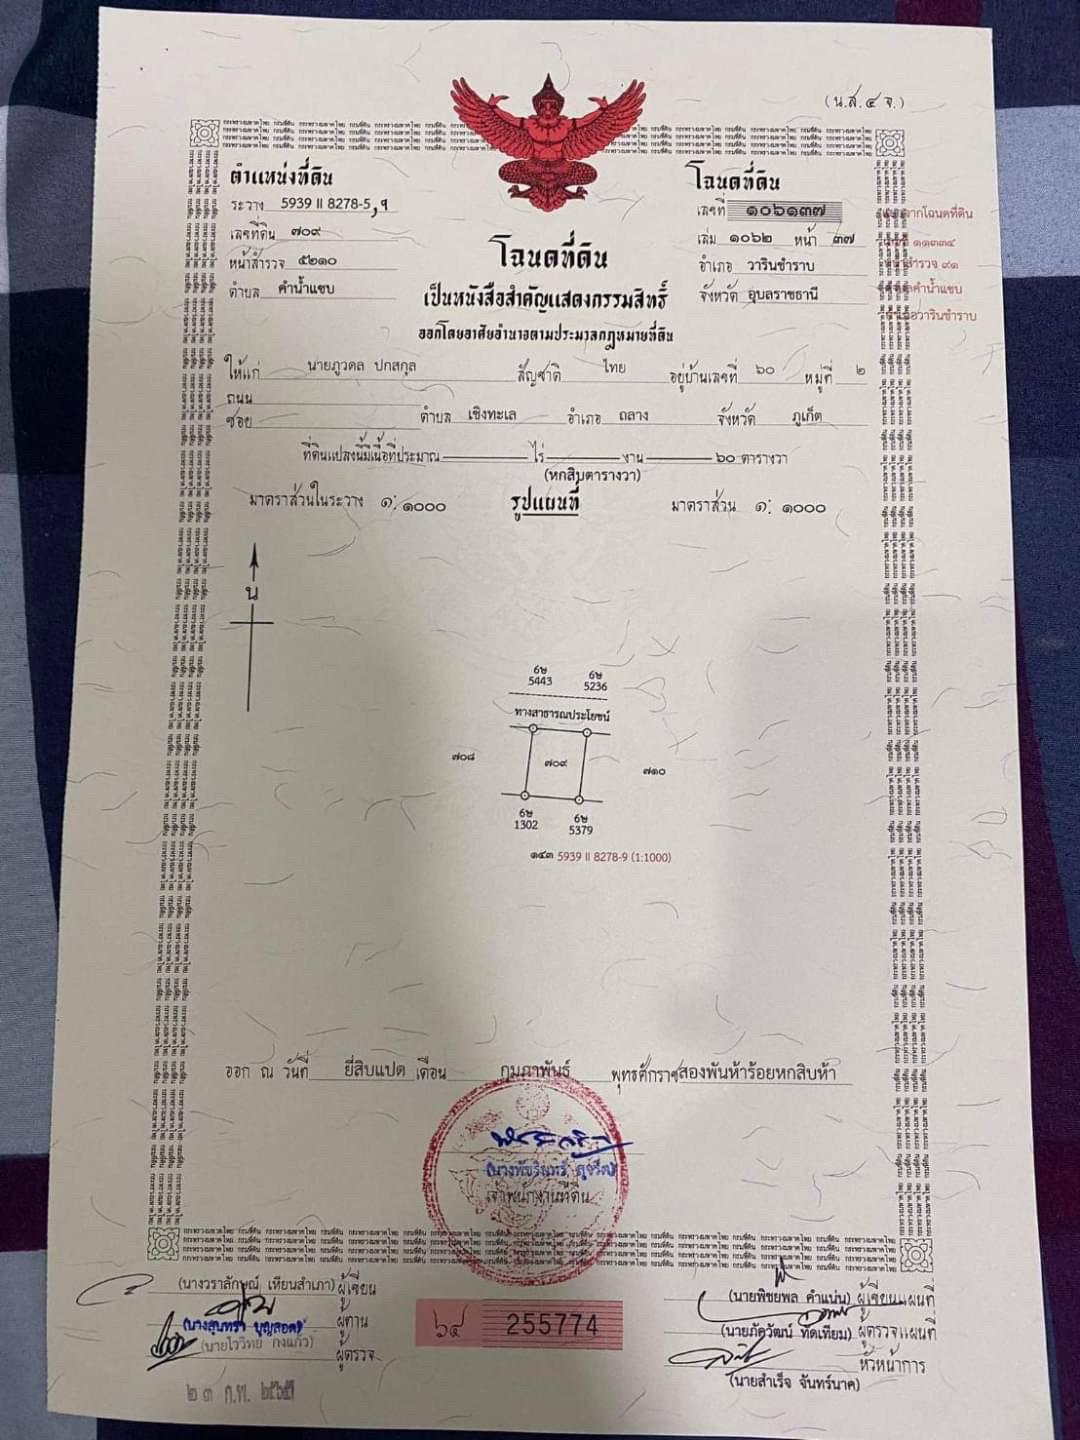 (น.ส.๔ จ.)
ตำแหน่งที่ดิน
ระวาง 5939 II 8278-5, ๙
เลขที่ดิน ๗๐๙
หน้าสำรวจ ๕๒๑๐
ตำบล คำน้ำแซบ
โฉนดที่ดิน
เลขที่ ๑๐๖๑๓๗
เล่ม ๑๐๖๒ หน้า ๓๗
อำเภอ วารินชำราบ
จังหวัด อุบลราชธานี
จากโฉนดที่ดิน
๑๑๓๓๔
สำรวจ ๙๑
คำน้ำแซบ
วารินชำราบ
โฉนดที่ดิน
เป็นหนังสือสำคัญแสดงกรรมสิทธิ์
ออกโดยอาศัยอำนาจตามประมวลกฎหมายที่ดิน
ให้แก่ นายภูวดล ปกสกุล สัญชาติ ไทย อยู่บ้านเลขที่ ๖๐ หมู่ที่ ๒
ถนน
ซอย ตำบล เชิงทะเล อำเภอ ถลาง จังหวัด ภูเก็ต
ที่ดินแปลงนี้มีเนื้อที่ประมาณ ไร่ งาน ๖๐ ตารางวา
(หกสิบตารางวา)
มาตราส่วนในระวาง ๑: ๑๐๐๐ รูปแผนที่ มาตราส่วน ๑: ๑๐๐๐
น
6ษ 5443
6ษ 5236
ทางสาธารณประโยชน์
๗๐๘ ๗๐๙ ๗๑๐
6ษ 1302
6ษ 5379
๑๔๓ 5939 II 8278-9 (1:1000)
ออก ณ วันที่ ยี่สิบแปด เดือน กุมภาพันธ์ พุทธศักราช สองพันห้าร้อยหกสิบห้า
เจ้าพนักงานที่ดิน
(นางวราลักษณ์ เหียนสำเภา) ผู้เขียน
(นางสุนทรา บุญสอด) ผู้ทาน
(นายไววิทย์ กงแก้ว) ผู้ตรวจ
๒๓ ก.พ. ๒๕๖๕
๖๔ 255774
(นายพิชยพล คำแน่น) ผู้เขียนแผนที่
(นายภัควัฒน์ ทัดเทียม) ผู้ตรวจแผนที่
หัวหน้าการ
(นายสำเร็จ จันทร์นาค)